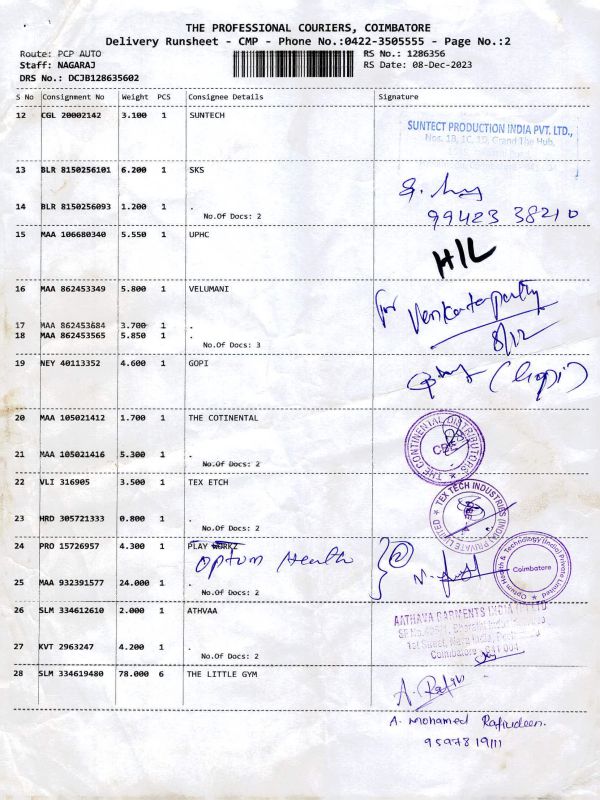 THE PROFESSIONAL COURIERS, COIMBATORE
Delivery Runsheet - CMP - Phone No.:0422-3505555 - Page No.:2
Route: PCP AUTO
RS No.: 1286356
Staff: NAGARAJ
RS Date: 08-Dec-2023
DRS No.: DCJB128635602
S No Consignment No Weight PCS Consignee Details Signature
12 CGL 20002142 3.100 1 SUNTECH
SUNTECT PRODUCTION INDIA PVT. LTD.,
Nos. 1B, 1C, 1D, Grand The Hub,
13 BLR 8150256101 6.200 1 SKS
14 BLR 8150256093 1.200 1 .
99423 38210
No.Of Docs: 2
15 MAA 106680340 5.550 1 UPHC
H/L
16 MAA 862453349 5.800 1 VELUMANI
for Venkatapathy
17 MAA 862453684 3.700 1 .
18 MAA 862453565 5.850 1 .
8/12
No.Of Docs: 3
19 NEY 40113352 4.600 1 GOPI
(Gopi)
20 MAA 105021412 1.700 1 THE COTINENTAL
THE CONTINENTAL DISTRIBUTORS
CBE
21 MAA 105021416 5.300 1 .
No.Of Docs: 2
22 VLI 316905 3.500 1 TEX ETCH
TEX TECH INDUSTRIES (INDIA) PRIVATE LIMITED
23 HRD 305721333 0.800 1 .
No.Of Docs: 2
24 PRO 15726957 4.300 1 PLAY WORKZ
Optum Health
2
Optum Health & Technology (India) Private Limited
Coimbatore
25 MAA 932391577 24.000 1 .
No.Of Docs: 2
26 SLM 334612610 2.000 1 ATHVAA
AATHAVA GARMENTS INDIA
Coimbatore - 641 004
27 KVT 2963247 4.200 1 .
No.Of Docs: 2
28 SLM 334619480 78.000 6 THE LITTLE GYM
A. Rafiu
A. Mohamed Rafiudeen.
9597819111